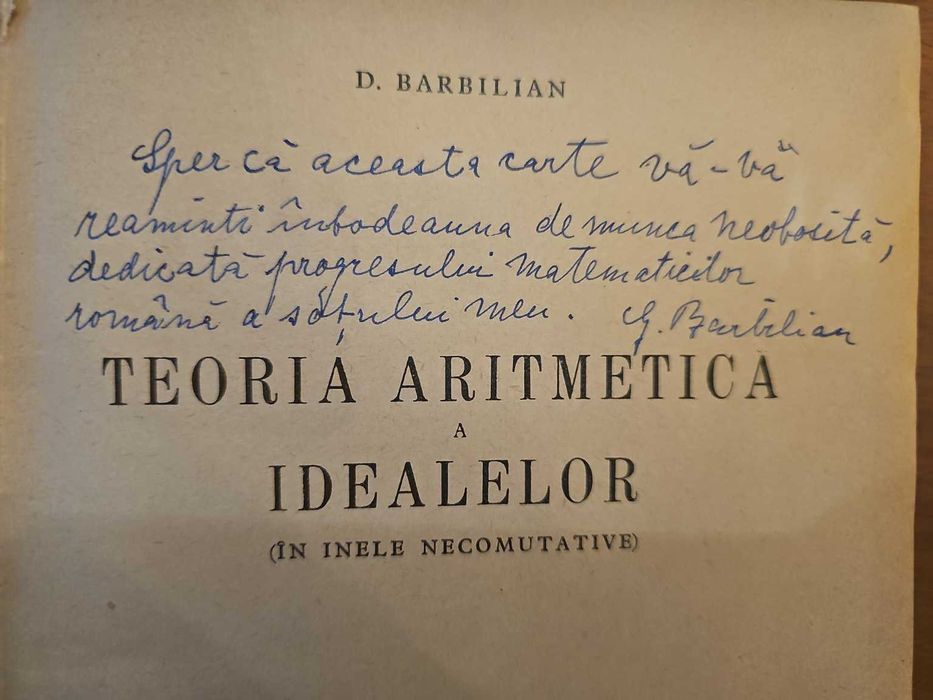 D. BARBILIAN
Sper că aceasta carte vă-va
reaminti înbodeauna de munca neobosită,
dedicată progresului matematicilor
română a soțului meu. G. Barbilian
TEORIA ARITMETICA
A
IDEALELOR
(ÎN INELE NECOMUTATIVE)